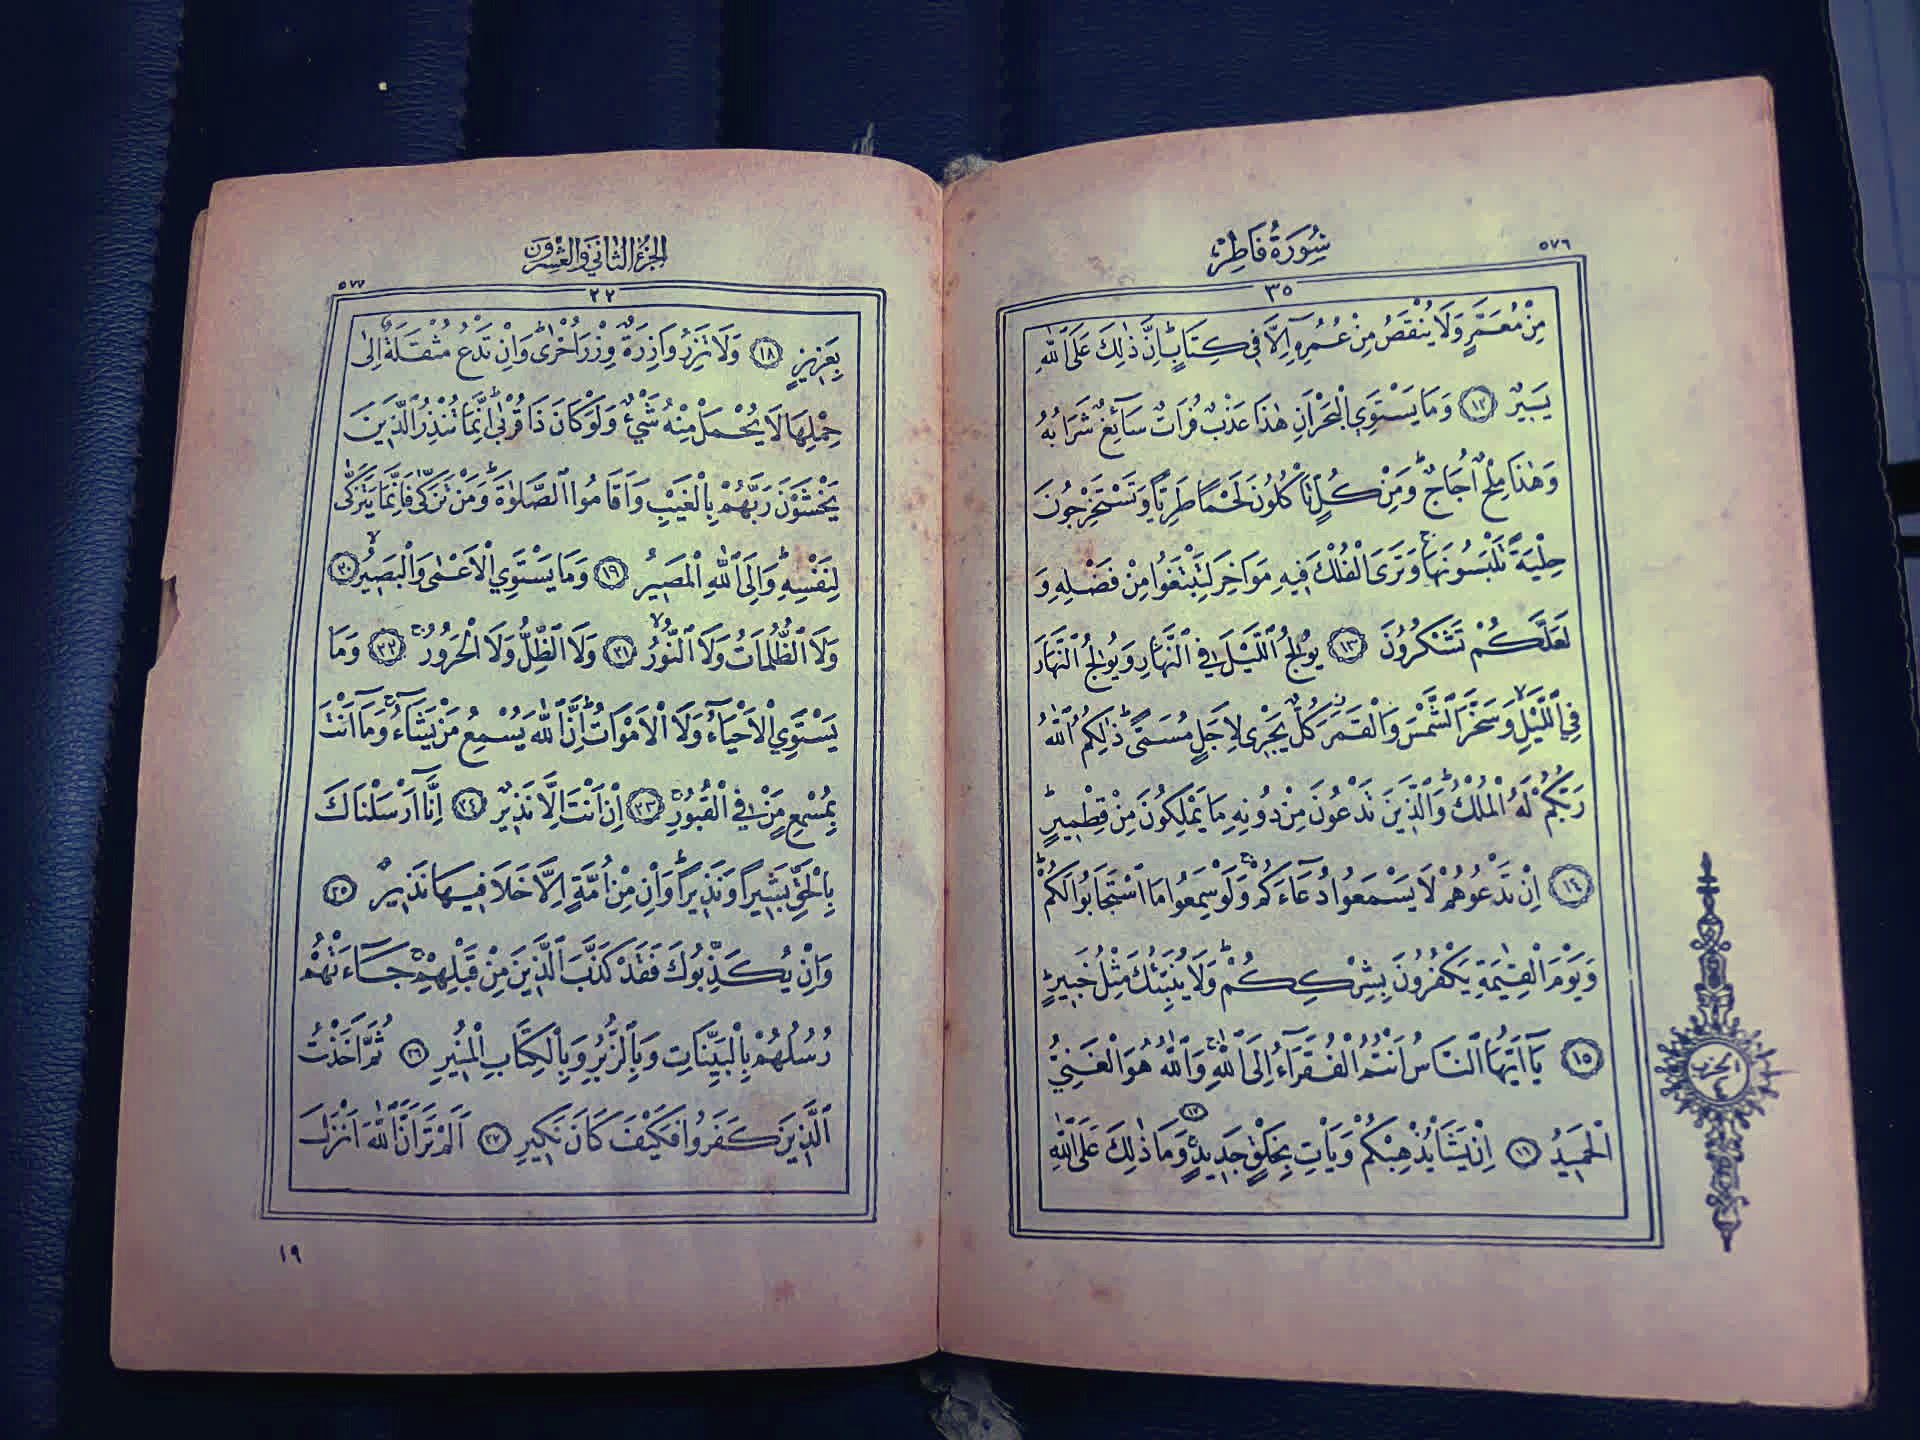 ٥٧٦
سُورَةُ فَاطِرْ
٣٥
مِنْ مُعَمَّرٍ وَلَا يُنْقَصُ مِنْ عُمُرِهِٓ اِلَّا فٖي كِتَابٍؕ اِنَّ ذٰلِكَ عَلَى اللّٰهِ
يَسٖيرٌ ﴿١٢﴾ وَمَا يَسْتَوِي الْبَحْرَانِ هٰذَا عَذْبٌ فُرَاتٌ سَٓائِغٌ شَرَابُهُ
وَهٰذَا مِلْحٌ اُجَاجٌؕ وَمِنْ كُلٍّ تَأْكُلُونَ لَحْمًا طَرِيًّا وَتَسْتَخْرِجُونَ
حِلْيَةً تَلْبَسُونَهَاۚ وَتَرَى الْفُلْكَ فٖيهِ مَوَاخِرَ لِتَبْتَغُوا مِنْ فَضْلِهٖ وَ
لَعَلَّكُمْ تَشْكُرُونَ ﴿١٣﴾ يُولِجُ الَّيْلَ فِي النَّهَارِ وَيُولِجُ النَّهَارَ
فِي الَّيْلِۙ وَسَخَّرَ الشَّمْسَ وَالْقَمَرَؗ كُلٌّ يَجْرٖي لِاَجَلٍ مُسَمًّىؕ ذٰلِكُمُ اللّٰهُ
رَبُّكُمْ لَهُ الْمُلْكُؕ وَالَّذٖينَ تَدْعُونَ مِنْ دُونِهٖ مَا يَمْلِكُونَ مِنْ قِطْمٖيرٍؕ
﴿١٤﴾ اِنْ تَدْعُوهُمْ لَا يَسْمَعُوا دُعَٓاءَكُمْۚ وَلَوْ سَمِعُوا مَا اسْتَجَابُوا لَكُمْؕ
وَيَوْمَ الْقِيٰمَةِ يَكْفُرُونَ بِشِرْكِكُمْؕ وَلَا يُنَبِّئُكَ مِثْلُ خَبٖيرٍؕ
﴿١٥﴾ يَٓا اَيُّهَا النَّاسُ اَنْتُمُ الْفُقَرَٓاءُ اِلَى اللّٰهِۚ وَاللّٰهُ هُوَ الْغَنِيُّ
الْحَمٖيدُ ﴿١٦﴾ اِنْ يَشَأْ يُذْهِبْكُمْ وَيَأْتِ بِخَلْقٍ جَدٖيدٍۚ ﴿١٧﴾ وَمَا ذٰلِكَ عَلَى اللّٰهِ
الجزء الثاني والعشرون
٥٧٧
٢٢
بِعَزٖيزٍ ﴿١٨﴾ وَلَا تَزِرُ وَازِرَةٌ وِزْرَ اُخْرٰىؕ وَاِنْ تَدْعُ مُثْقَلَةٌ اِلٰى
حِمْلِهَا لَا يُحْمَلْ مِنْهُ شَيْءٌ وَلَوْ كَانَ ذَا قُرْبٰىؕ اِنَّمَا تُنْذِرُ الَّذٖينَ
يَخْشَوْنَ رَبَّهُمْ بِالْغَيْبِ وَاَقَامُوا الصَّلٰوةَؕ وَمَنْ تَزَكّٰى فَاِنَّمَا يَتَزَكّٰى
لِنَفْسِهٖؕ وَاِلَى اللّٰهِ الْمَصٖيرُ ﴿١٩﴾ وَمَا يَسْتَوِي الْاَعْمٰى وَالْبَصٖيرُۙ ﴿٢٠﴾
وَلَا الظُّلُمَاتُ وَلَا النُّورُۙ ﴿٢١﴾ وَلَا الظِّلُّ وَلَا الْحَرُورُۚ ﴿٢٢﴾ وَمَا
يَسْتَوِي الْاَحْيَٓاءُ وَلَا الْاَمْوَاتُؕ اِنَّ اللّٰهَ يُسْمِعُ مَنْ يَشَٓاءُۚ وَمَٓا اَنْتَ
بِمُسْمِعٍ مَنْ فِي الْقُبُورِۚ ﴿٢٣﴾ اِنْ اَنْتَ اِلَّا نَذٖيرٌ ﴿٢٤﴾ اِنَّٓا اَرْسَلْنَاكَ
بِالْحَقِّ بَشٖيرًا وَنَذٖيرًاؕ وَاِنْ مِنْ اُمَّةٍ اِلَّا خَلَا فٖيهَا نَذٖيرٌ ﴿٢٥﴾
وَاِنْ يُكَذِّبُوكَ فَقَدْ كَذَّبَ الَّذٖينَ مِنْ قَبْلِهِمْۚ جَٓاءَتْهُمْ
رُسُلُهُمْ بِالْبَيِّنَاتِ وَبِالزُّبُرِ وَبِالْكِتَابِ الْمُنٖيرِ ﴿٢٦﴾ ثُمَّ اَخَذْتُ
الَّذٖينَ كَفَرُوا فَكَيْفَ كَانَ نَكٖيرِ ﴿٢٧﴾ اَلَمْ تَرَ اَنَّ اللّٰهَ اَنْزَلَ
١٩